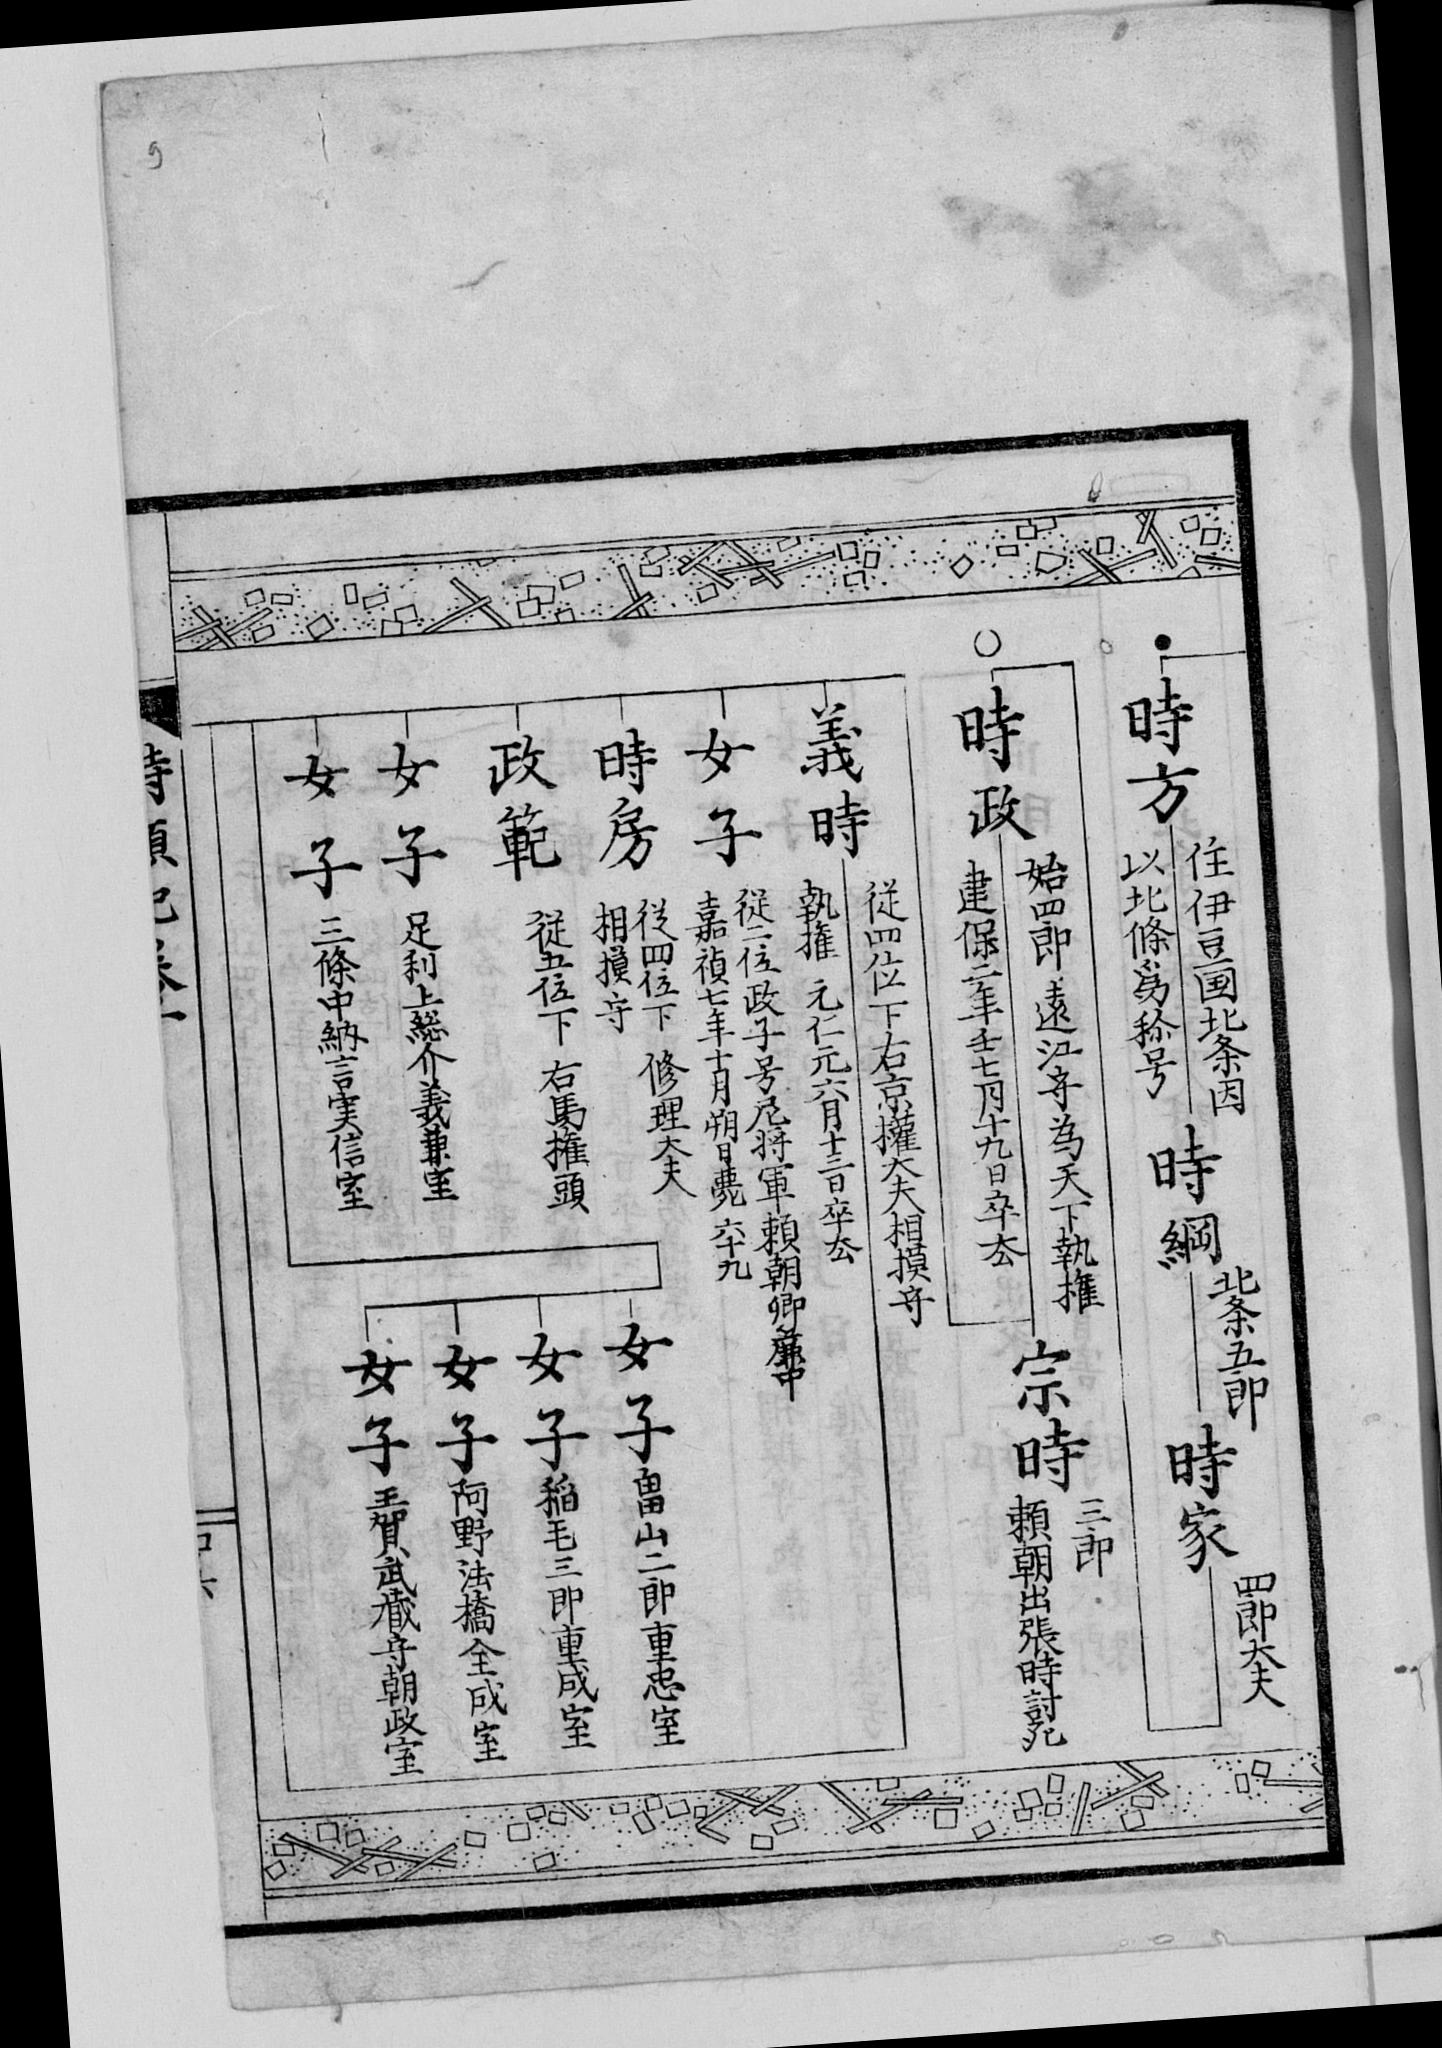 時方
住伊豆国北条因
以北條為称号
時綱
北条五郎
時家
四郎大夫
時政
始四郎 遠江守為天下執権
宗時
三郎
頼朝出張時討死
義時
従四位下右京権大夫相摸守
執権 元仁元六月十三日卒
女子
従二位政子号尼将軍頼朝卿簾中
嘉禎七年十月朔日薨 六十九
時房
従四位下 修理大夫
相摸守
政範
従五位下 右馬権頭
女子
足利上総介義兼室
女子
三條中納言実信室
女子
畠山二郎重忠室
女子
稲毛三郎重成室
女子
阿野法橋全成室
女子
平賀武蔵守朝政室
時頼記巻一